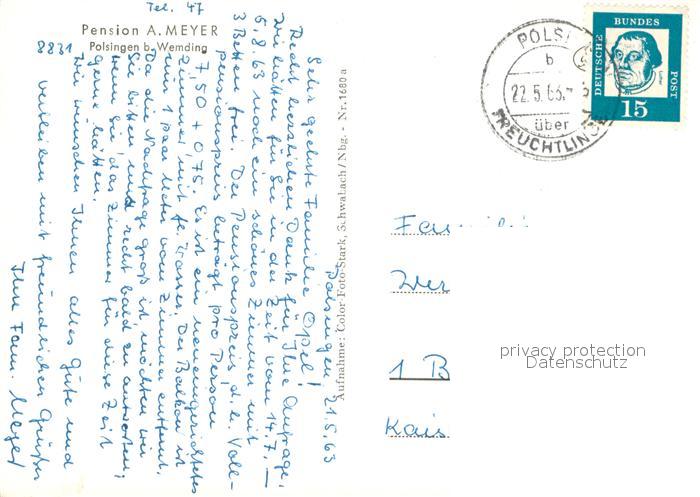 Tel. 47
Pension A. MEYER
Polsingen b. Wemding
8831
Polsingen, 21.5.63
Sehr geehrte Familie Opel!
Recht herzlichen Dank für Ihre Anfrage.
Wir hätten für Sie in der Zeit vom 14.7. –
5.8.63 noch ein schönes Zimmer mit
3 Betten frei. Der Pensionspreis, d.h. Voll-
pensionspreis beträgt pro Person
7,50 + 0,75. Es ist ein neueingerichtetes
Zimmer mit fl. Wasser. Der Balkon ist
nur 1 paar Meter vom Zimmer entfernt.
Da die Nachfrage groß ist möchten wir
Sie bitten uns recht bald zu antworten,
wenn Sie das Zimmer für diese Zeit
gerne hätten.
Wir wünschen Ihnen alles Gute und
verbleiben mit freundlichen Grüßen
Ihre Fam. Meyer
Aufnahme: Color-Foto-Stark, Schwabach/Nbg. - Nr. 1680a
POLSI
b
22.5.63.-
über
TREUCHTLINGE
DEUTSCHE
BUNDES
POST
Luther
15
Fam
1 B
Kais
privacy protection
Datenschutz